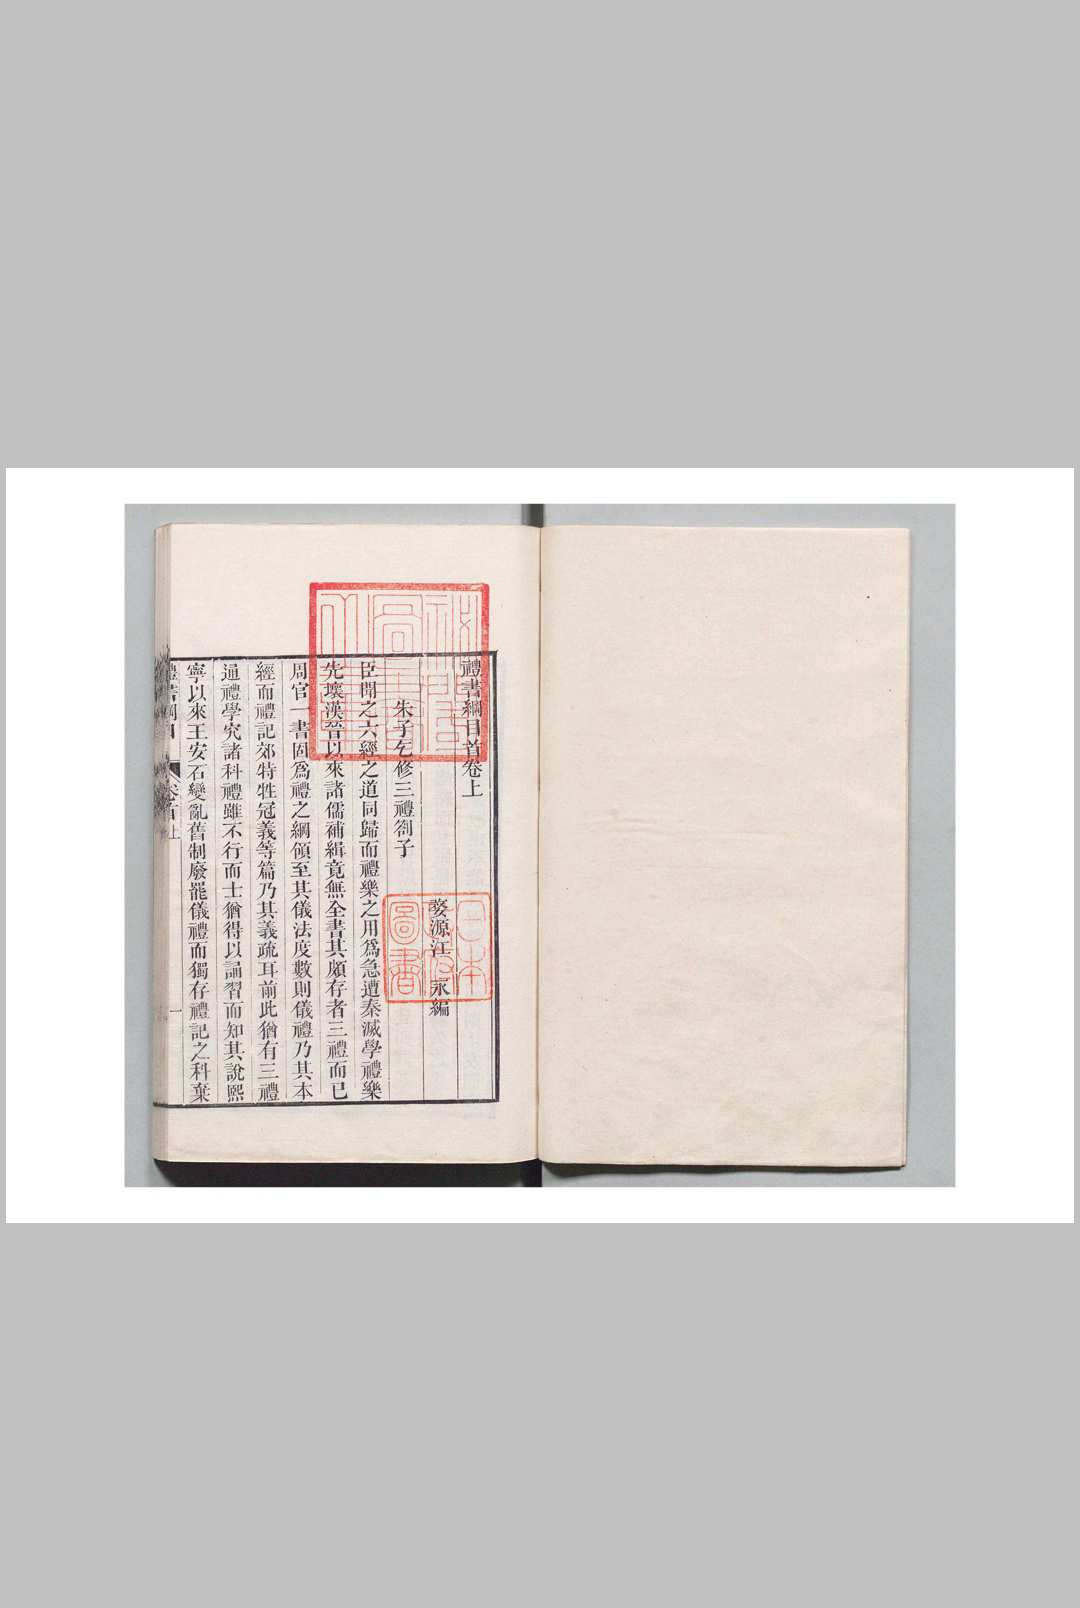 禮書綱目首卷上
婺源江永編
朱子乞修三禮劄子
臣聞之六經之道同歸而禮樂之用爲急遭秦滅學禮樂
先壞漢晉以來諸儒補緝竟無全書其頗存者三禮而已
周官一書固爲禮之綱領至其儀法度數則儀禮乃其本
經而禮記郊特牲冠義等篇乃其義疏耳前此猶有三禮
通禮學究諸科禮雖不行而士猶得以誦習而知其說熙
寧以來王安石變亂舊制廢罷儀禮而獨存禮記之科棄
禮書綱目
卷首上
一
日本
圖書